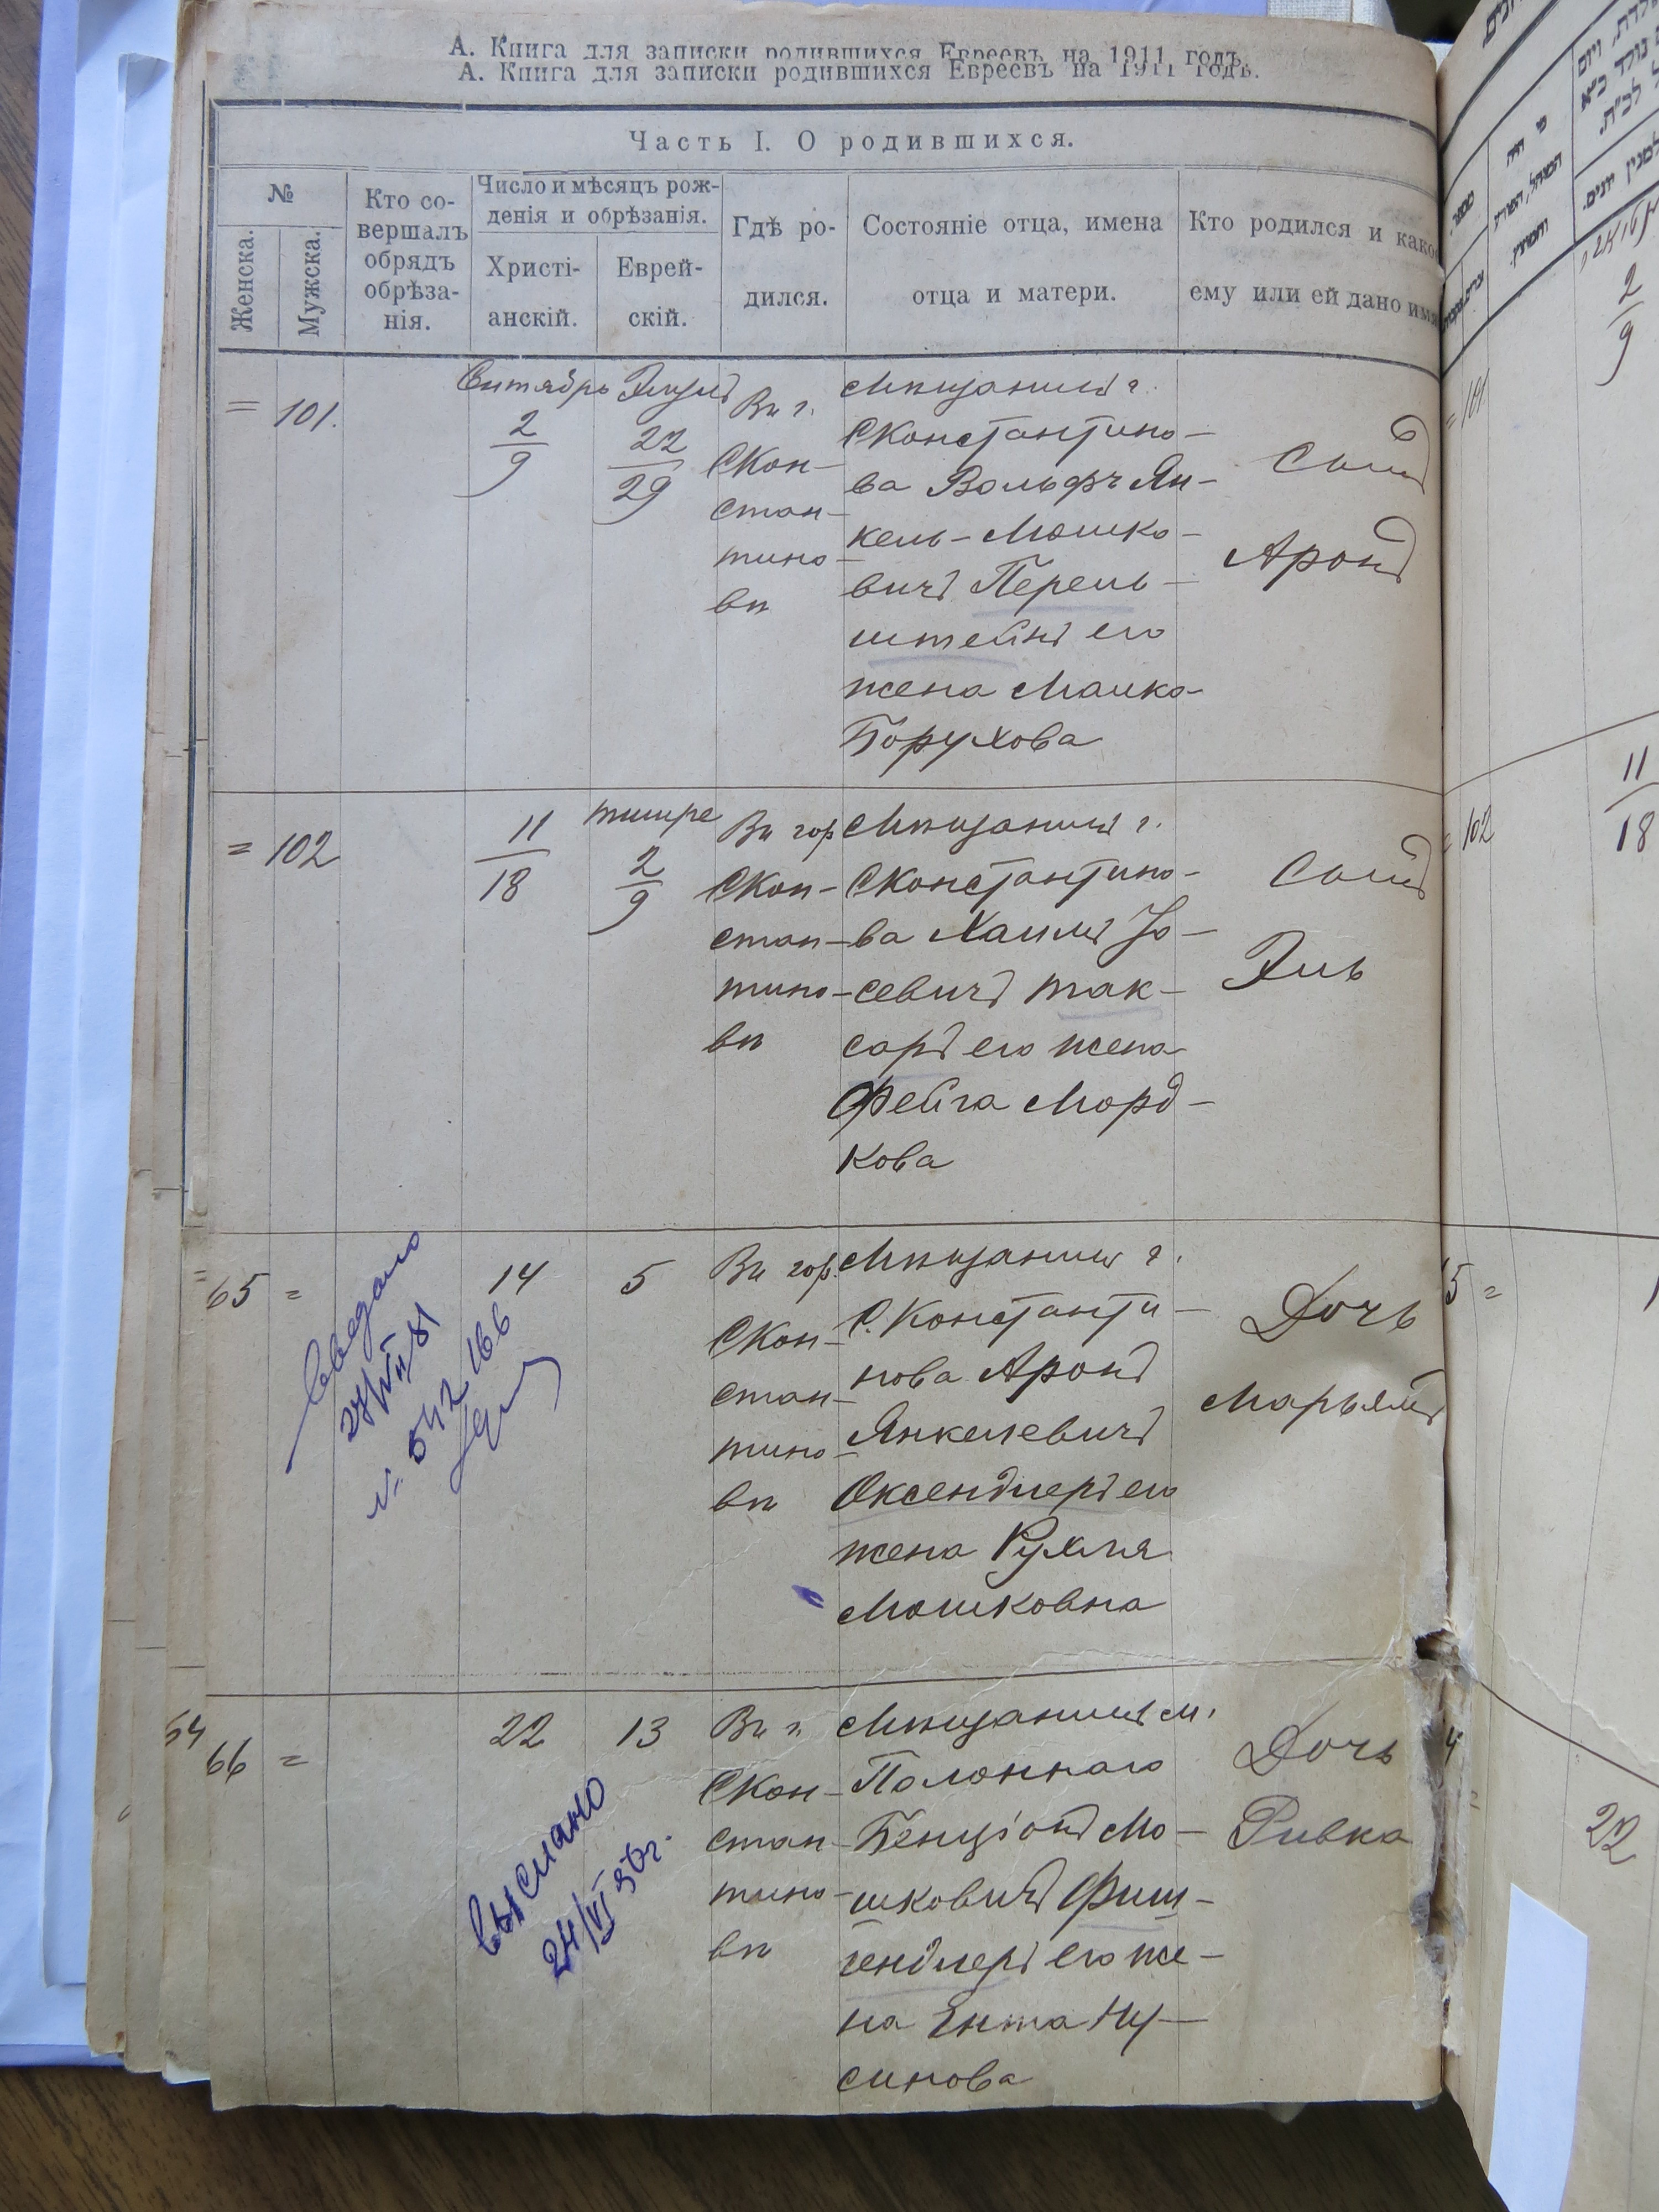 А. Книга для записки родившихся Евреевъ на 1911 годъ.
А. Книга для записки родившихся Евреевъ на 1911 годъ.
Часть I. О родившихся.
№
Женска.
Мужска.
Кто со-
вершалъ
обрядъ
обрѣза-
нія.
Число и мѣсяцъ рож-
денія и обрѣзанія.
Христі-
анскій.
Еврей-
скій.
Гдѣ ро-
дился.
Состояніе отца, имена
отца и матери.
Кто родился и како
ему или ей дано имя
=
101.
Сентябрь
2
9
Элулъ
22
29
Въ г.
СКон-
стан-
тино-
вѣ
Мѣщанинъ г.
СКонстантино-
ва Вольфъ Ян-
кель-Мошко-
вичъ Перель-
штейнъ его
жена Малка
Борухова
Сынъ
Аронъ
=
102
11
18
тишре
2
9
Въ гор
СКон-
стан-
тино-
вѣ
Мѣщанинъ г.
СКонстантино-
ва Хаимъ Іо-
севичъ Так-
саръ его жена
Фейга Морд-
кова
Сынъ
Эль
65
=
14
5
Въ гор.
СКон-
стан-
тино-
вѣ
Мѣщанинъ г.
С. Константи-
нова Аронъ
Янкелевичъ
Оксендлеръ его
жена Рухля
Мошковна
Дочь
Марьямъ
27/VII 81
№ 542166
54
66
=
22
13
Въ г.
СКон-
стан-
тино-
вѣ
Мѣщанинъ м.
Полоннаго
Бенціонъ Мо-
шковичъ Фиш-
гендлеръ его же-
на Ента Ну-
синова
Дочь
Ривка
выслано
24/VI 56г.
2
9
101
11
18
102
5 =
4
22